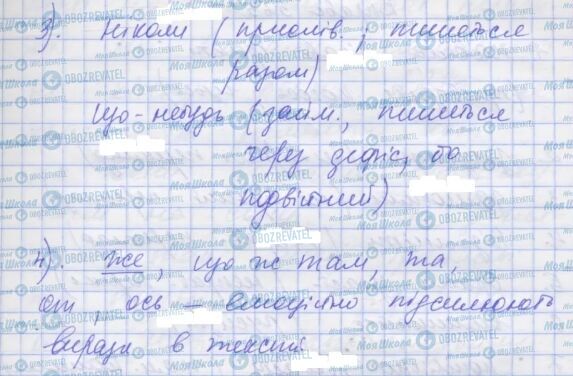 3). Ніколи (прислів.; пишеться
разом)
що-небудь (займ.; пишеться
через дефіс, бо
4). же, що ж там, та,
от, ось – емоційно підсилюють
вирази в тексті.
МояШкола OBOZREVATEL